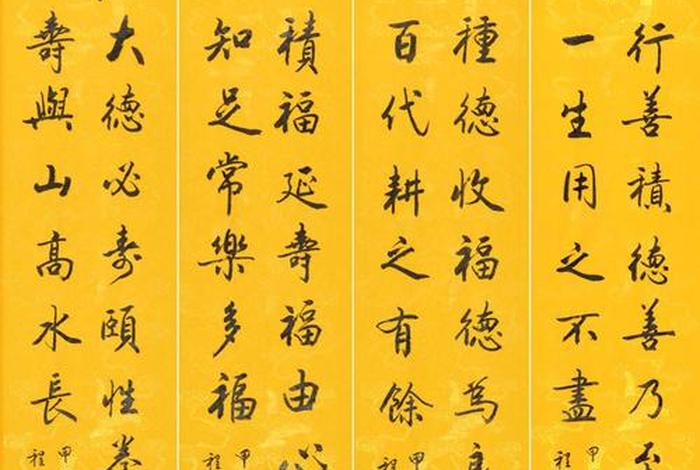 行善積德善乃
一生用之不盡
甲
程
種德收福德為
百代耕之有餘
甲
程
積福延壽福由心
知足常樂多福
甲
程
大德必寿頤性養
壽與山高水長
甲
程